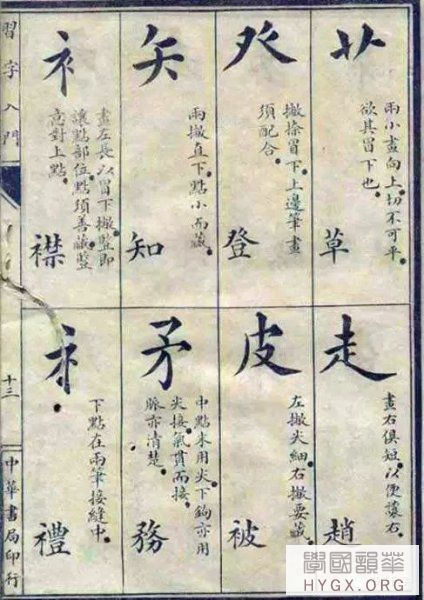 艹
兩小畫向上。切不可平。
欲其冒下也。
草
癶
撇捺冒下。上邊筆畫
須配合。
登
矢
兩撇直下。點小而藏。
知
衤
畫左長。以冒下撇。豎即
讓點部位。點須善藏。豎
意對上點。
襟
走
畫右俱短。以便讓右。
趙
皮
左撇尖細。右撇要藏。
被
矛
中點末用尖。下鉤亦用
尖接。氣貫而接。
脈亦清楚。
務
礻
下點在兩筆接縫中。
禮
習字入門
十三
中華書局印行
學國韻華
HYGX.ORG